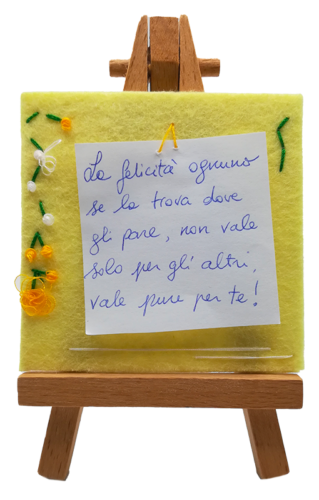 La felicità ognuno
se la trova dove
gli pare, non vale
solo per gli altri,
vale pure per te!